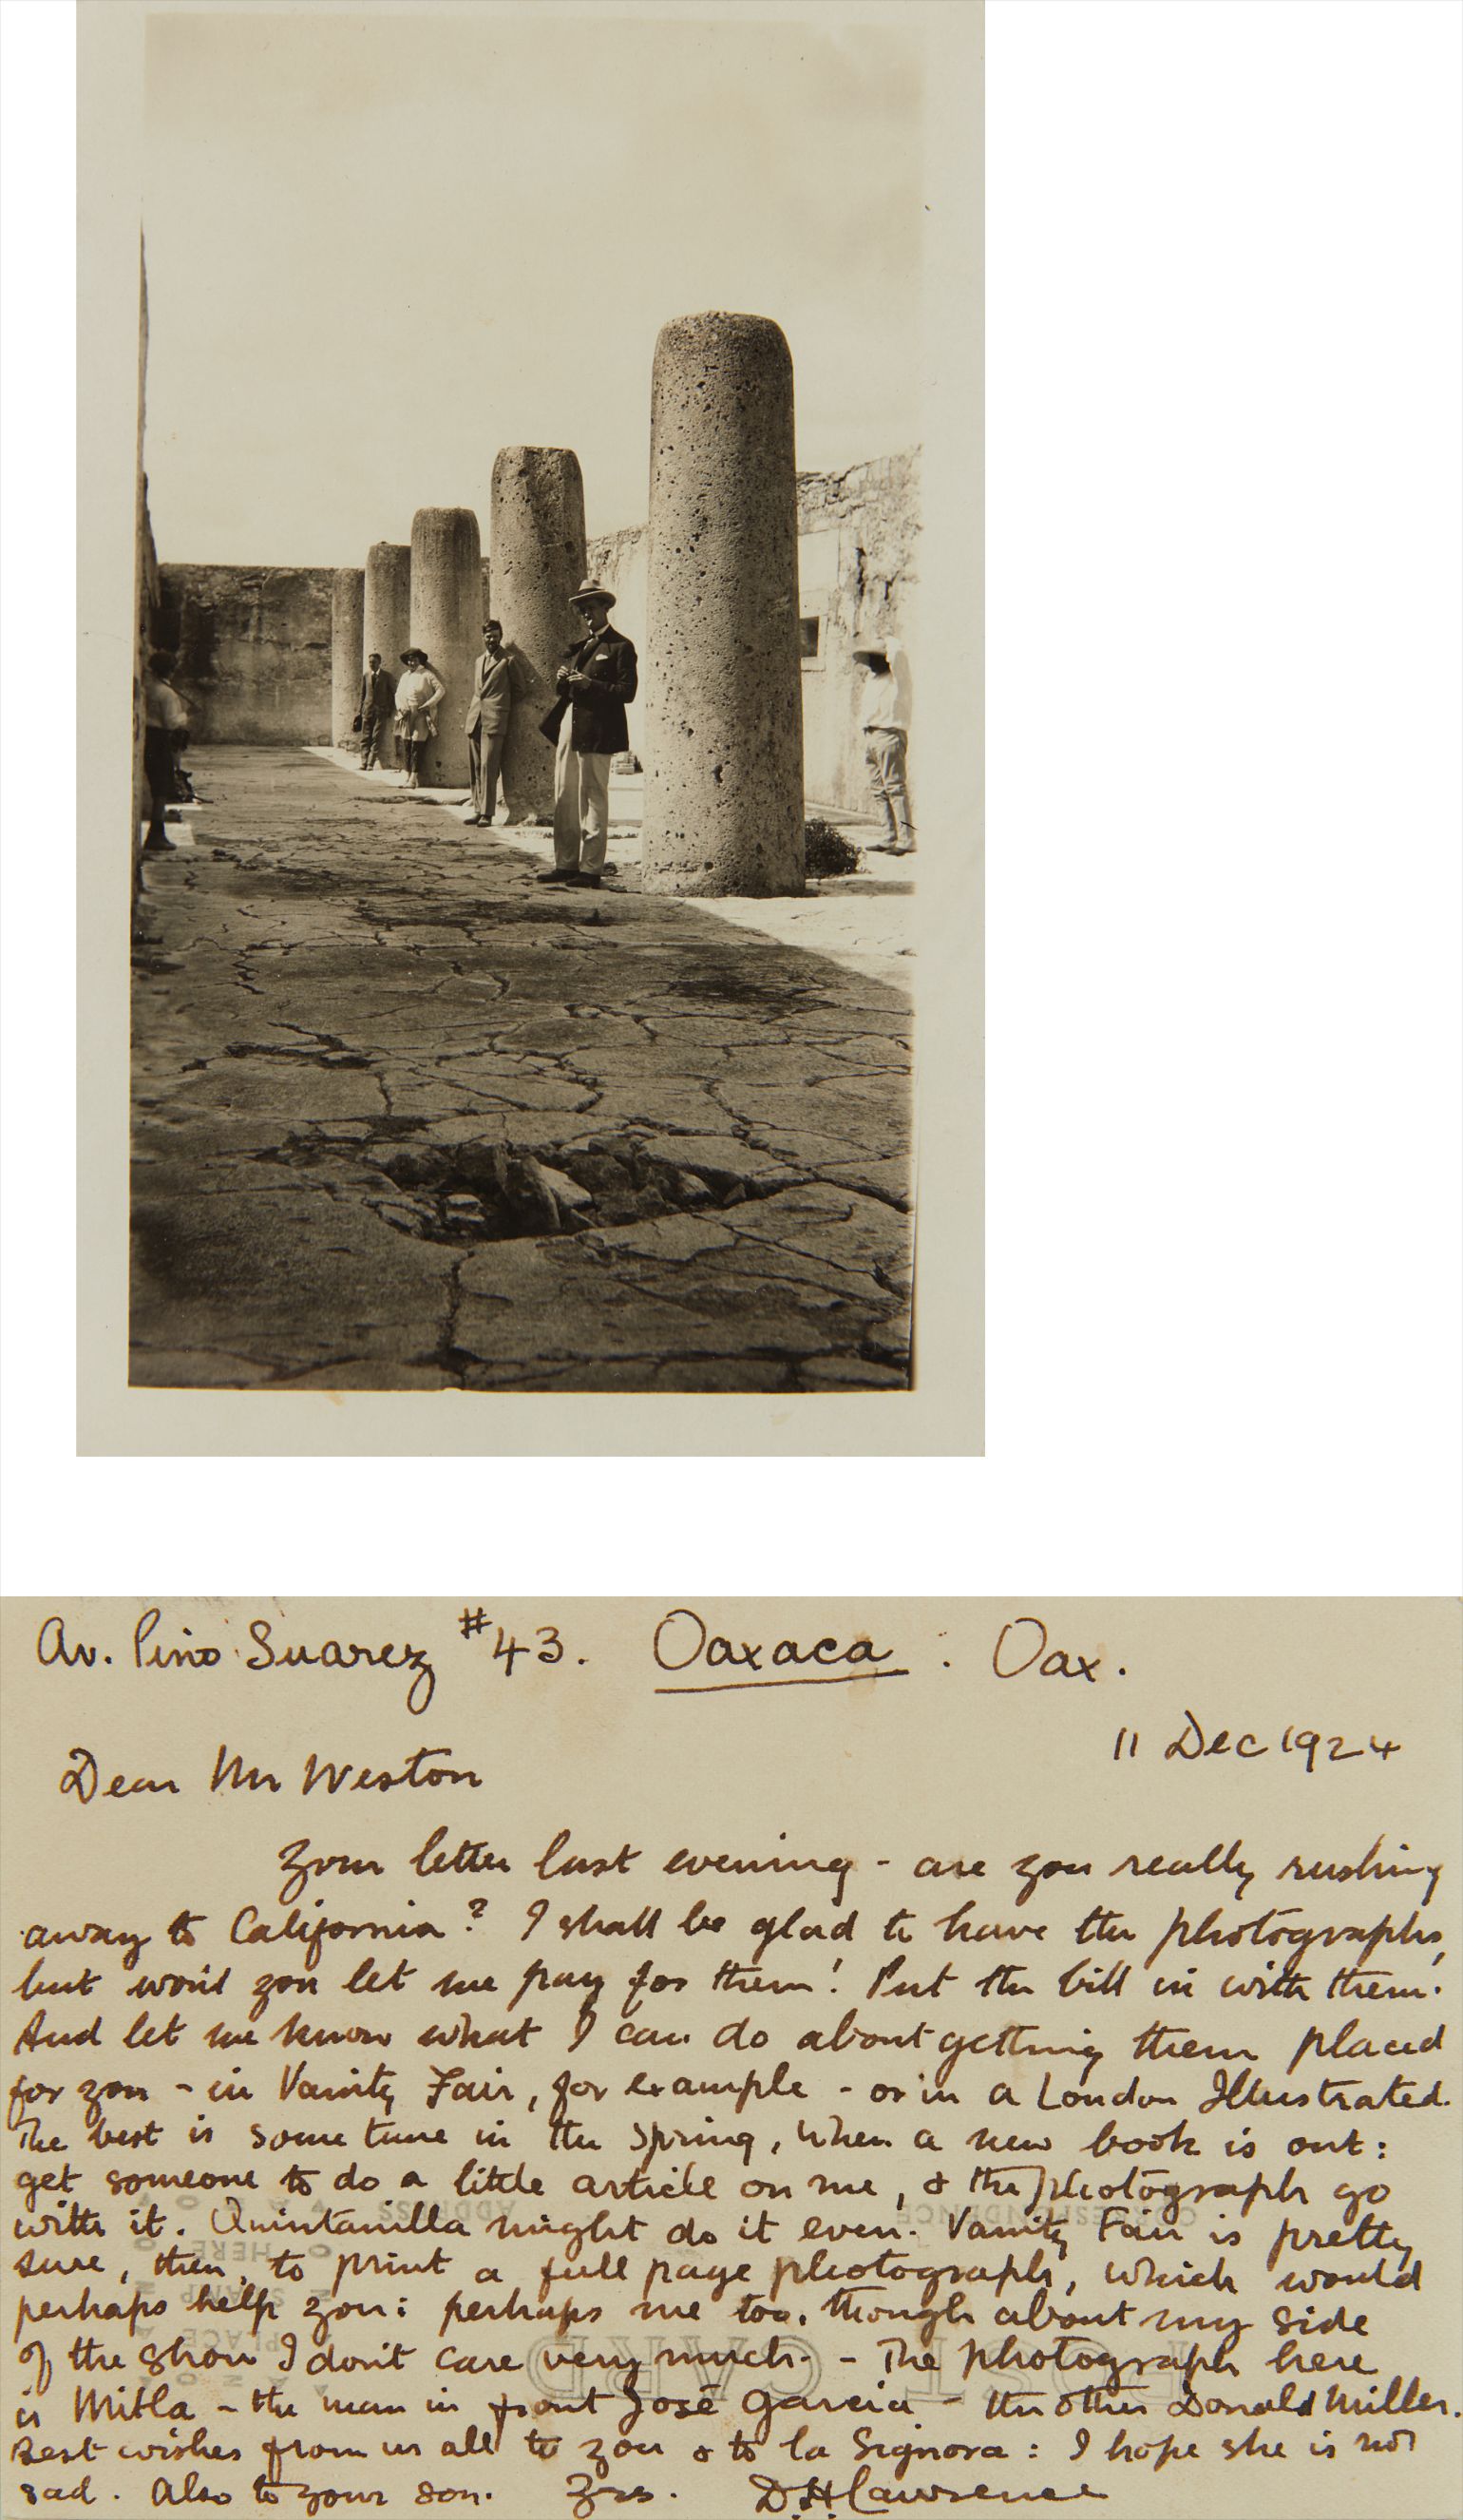 Av. Pino Suarez #43. Oaxaca : Oax.
11 Dec 1924
Dear Mr Weston
Your letter last evening - are you really rushing
away to California? I shall be glad to have the photographs,
but won't you let me pay for them! Put the bill in with them.
And let me know what I can do about getting them placed
for you - in Vanity Fair, for example - or in a London Illustrated.
The best is some time in the Spring, when a new book is out:
get someone to do a little article on me, & the photograph go
with it. Quintanilla might do it even. Vanity Fair is pretty
sure, then, to print a full page photograph, which would
perhaps help you: perhaps me too, though about my side
of the show I don't care very much. - The photograph here
is Mitla - the man in front José Garcia - the other Donald Miller.
Best wishes from us all to you & to la Signora: I hope she is not
sad. Also to your son. Yrs. D.H. Lawrence
CORRESPONDENCE
ADDRESS
PLACE
STAMP
HERE
POST CARD